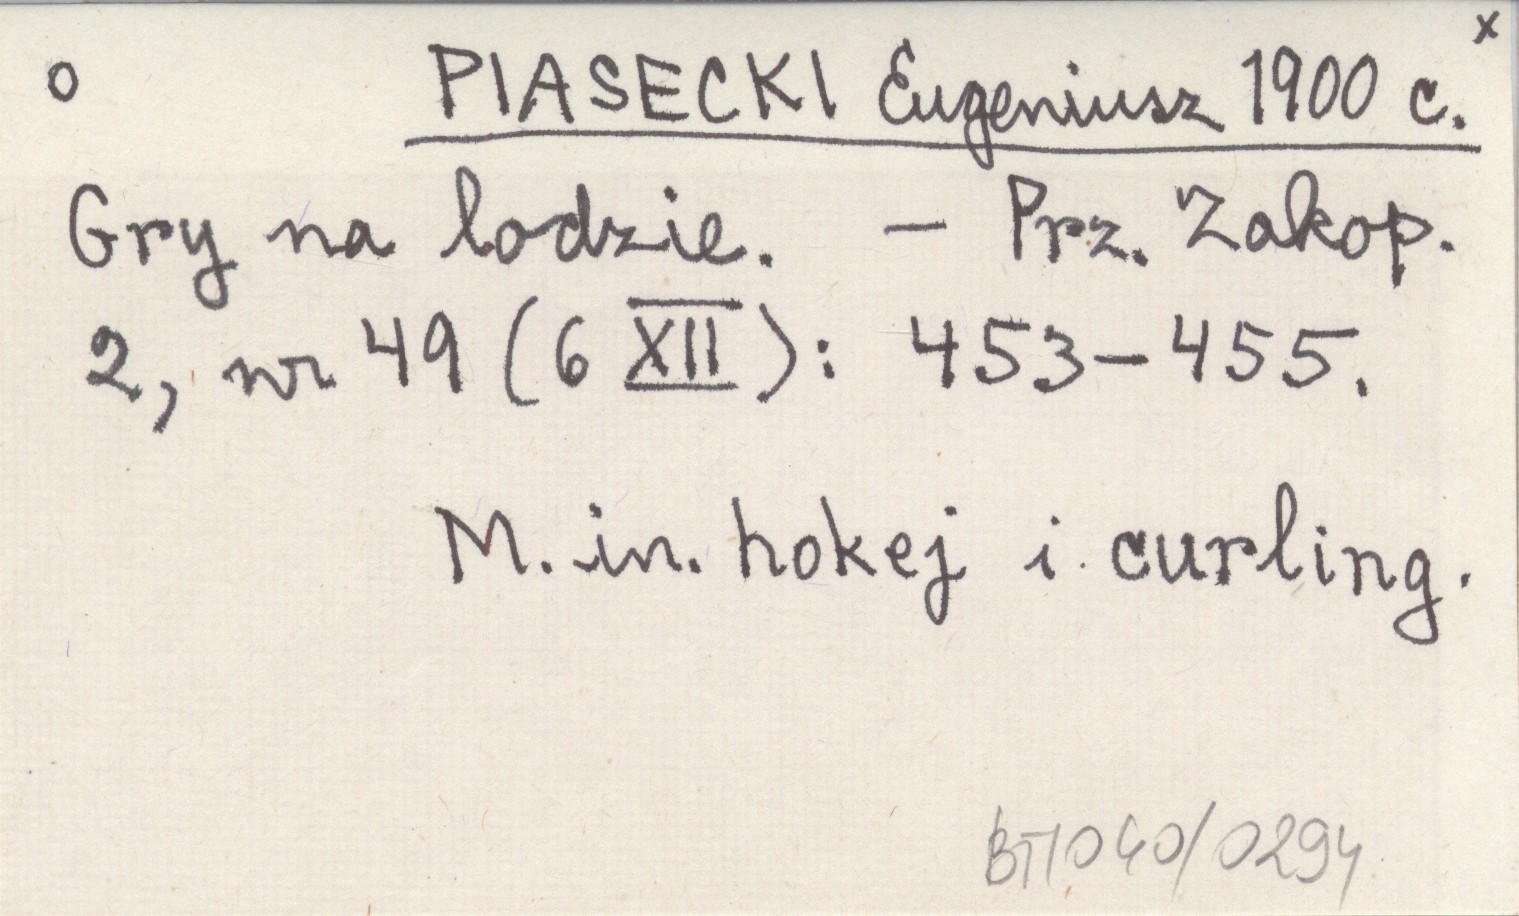 x
o PIASECKI Eugeniusz 1900 c.
Gry na lodzie. – Prz. Zakop.
2, nr 49 (6 XII): 453–455.
M. in. hokej i curling.
BT/040/0294